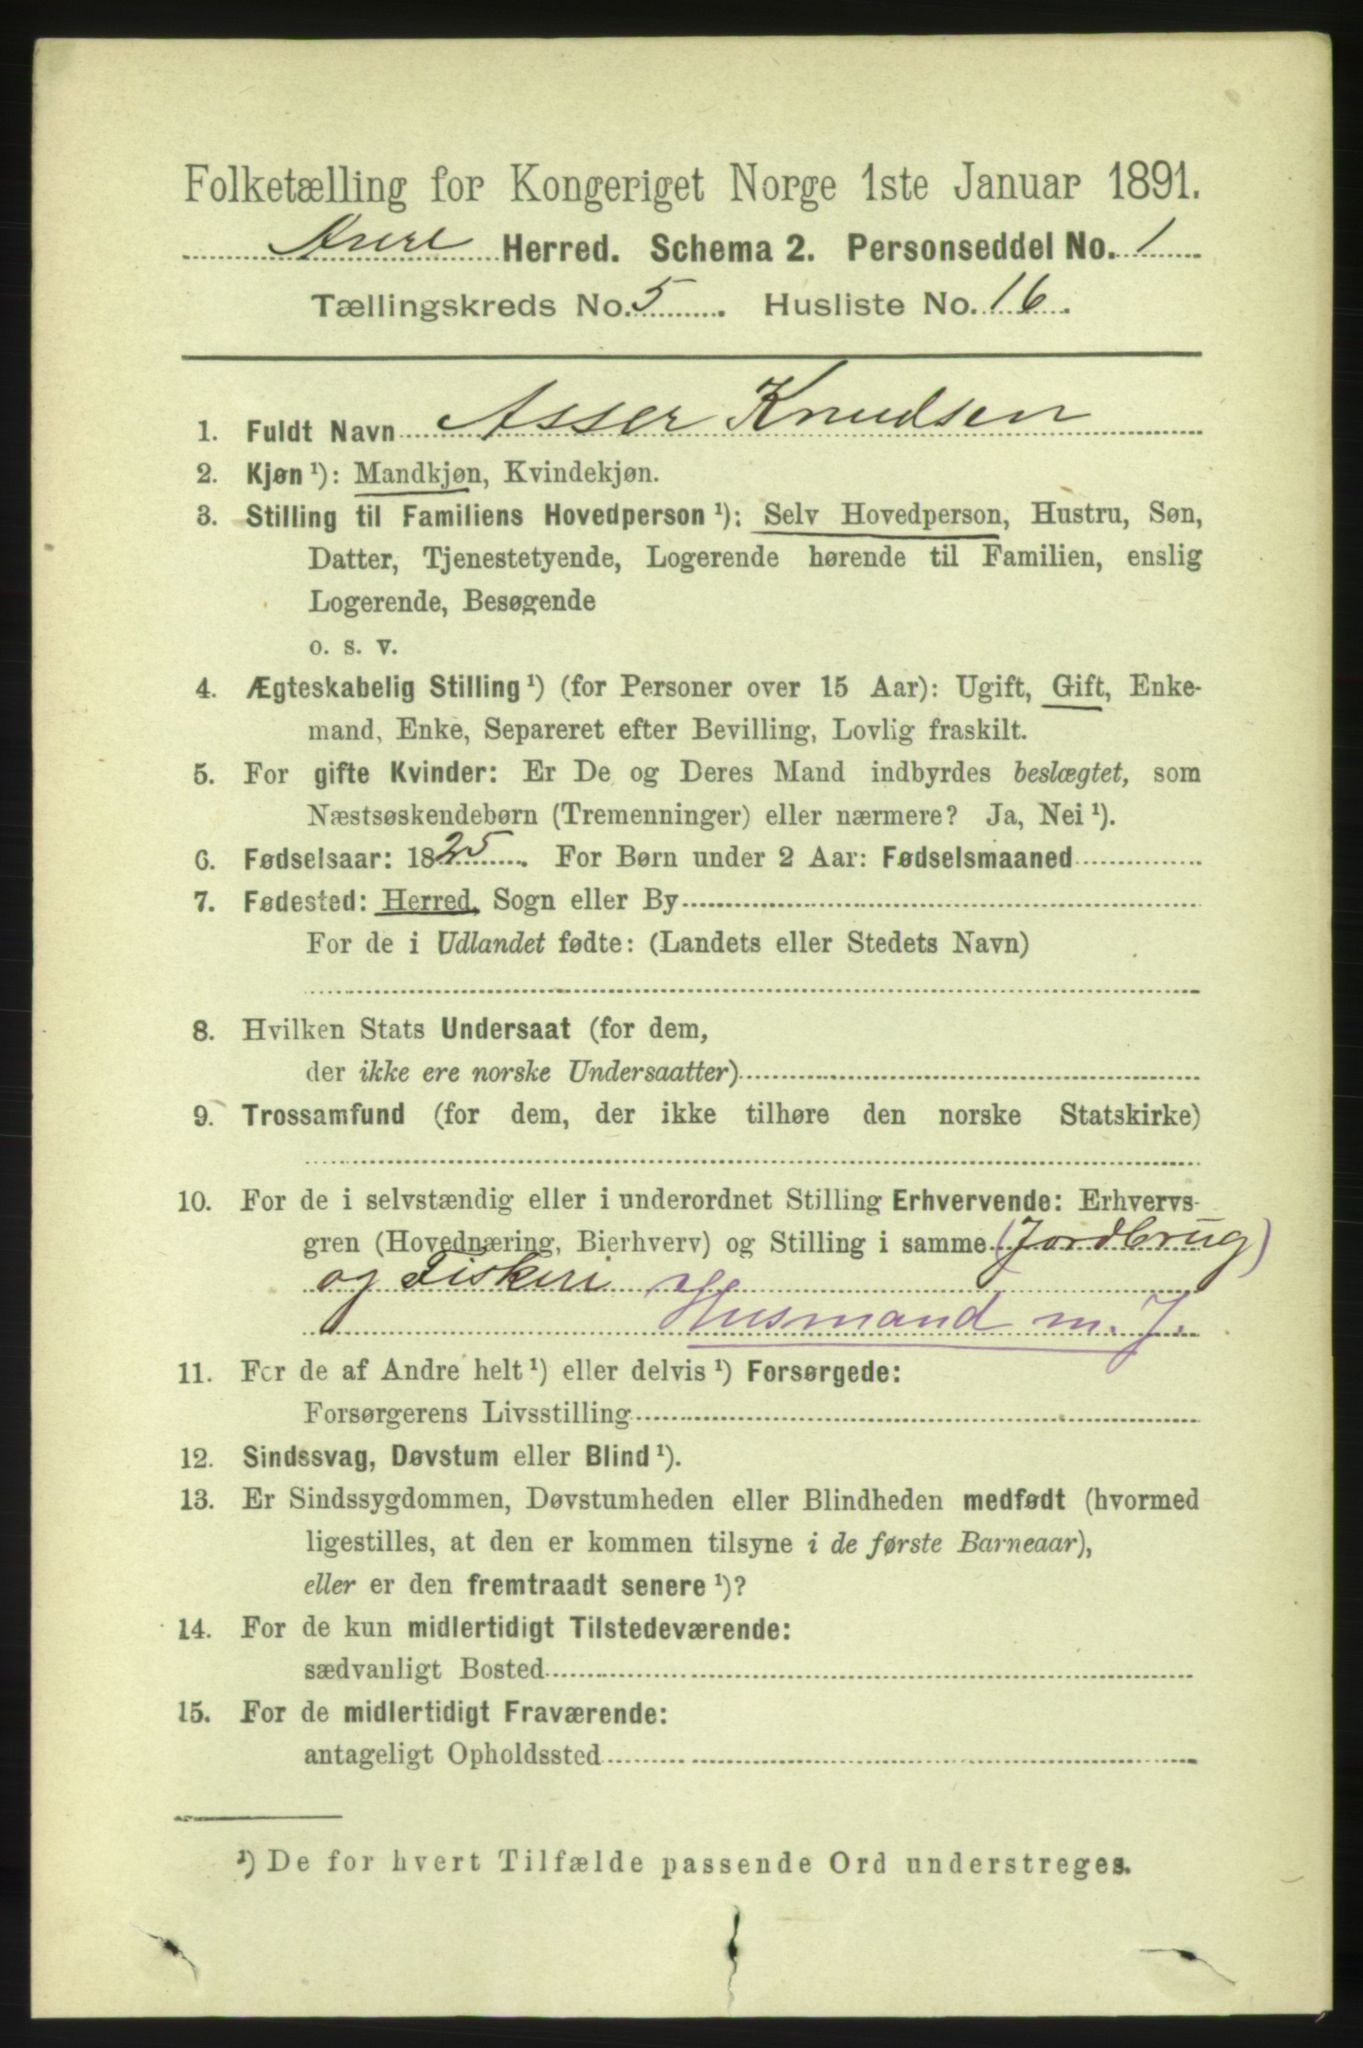 Folketælling for Kongeriget Norge 1ste Januar 1891.
Aure Herred. Schema 2. Personseddel No. 1
Tællingskreds No. 5. Husliste No. 16.
1. Fuldt Navn Asser Knudsen
2. Kjøn ¹): Mandkjøn, Kvindekjøn.
3. Stilling til Familiens Hovedperson ¹): Selv Hovedperson, Hustru, Søn,
Datter, Tjenestetyende, Logerende hørende til Familien, enslig
Logerende, Besøgende
o. s. v.
4. Ægteskabelig Stilling ¹) (for Personer over 15 Aar): Ugift, Gift, Enke-
mand, Enke, Separeret efter Bevilling, Lovlig fraskilt.
5. For gifte Kvinder: Er De og Deres Mand indbyrdes beslægtet, som
Næstsøskendebørn (Tremenninger) eller nærmere? Ja, Nei ¹).
6. Fødselsaar: 1825. For Børn under 2 Aar: Fødselsmaaned
7. Fødested: Herred, Sogn eller By
For de i Udlandet fødte: (Landets eller Stedets Navn)
8. Hvilken Stats Undersaat (for dem,
der ikke ere norske Undersaatter)
9. Trossamfund (for dem, der ikke tilhøre den norske Statskirke)
10. For de i selvstændig eller i underordnet Stilling Erhvervende: Erhvervs-
gren (Hovednæring, Bierhverv) og Stilling i samme (Jordbrug)
og Fiskeri
Husmand m. J.
11. For de af Andre helt ¹) eller delvis ¹) Forsørgede:
Forsørgerens Livsstilling
12. Sindssvag, Døvstum eller Blind ¹).
13. Er Sindssygdommen, Døvstumheden eller Blindheden medfødt (hvormed
ligestilles, at den er kommen tilsyne i de første Barneaar),
eller er den fremtraadt senere ¹)?
14. For de kun midlertidigt Tilstedeværende:
sædvanligt Bosted
15. For de midlertidigt Fraværende:
antageligt Opholdssted
¹) De for hvert Tilfælde passende Ord understreges.